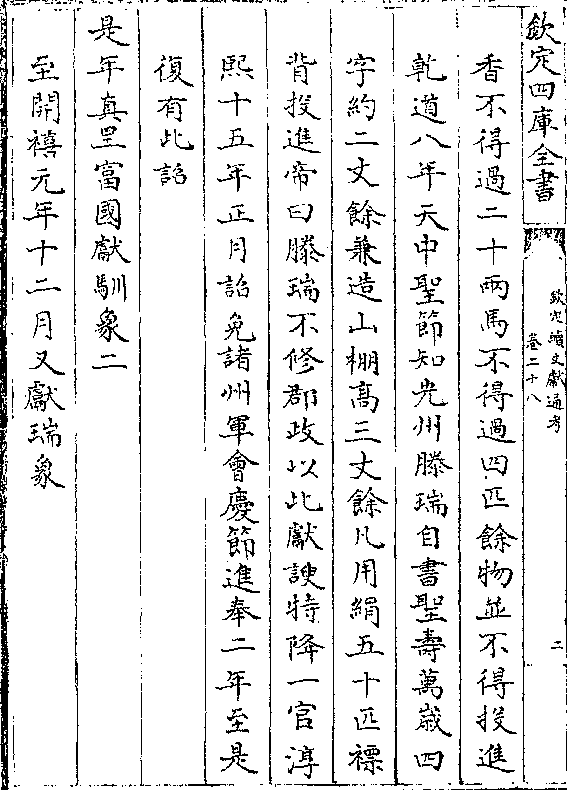 欽定四庫全書
欽定續文獻通考
卷二十八
二
香不得過二十兩馬不得過四匹餘物並不得投進
乾道八年天中聖節知光州滕瑞自書聖壽萬歲四
字約二丈餘兼造山棚髙三丈餘凡用絹五十匹褾
背投進帝曰滕瑞不修郡政以此獻諛特降一官淳
熙十五年正月詔免諸州軍會慶節進奉二年至是
復有此詔
是年真里富國獻馴象二
至開禧元年十二月又獻瑞象